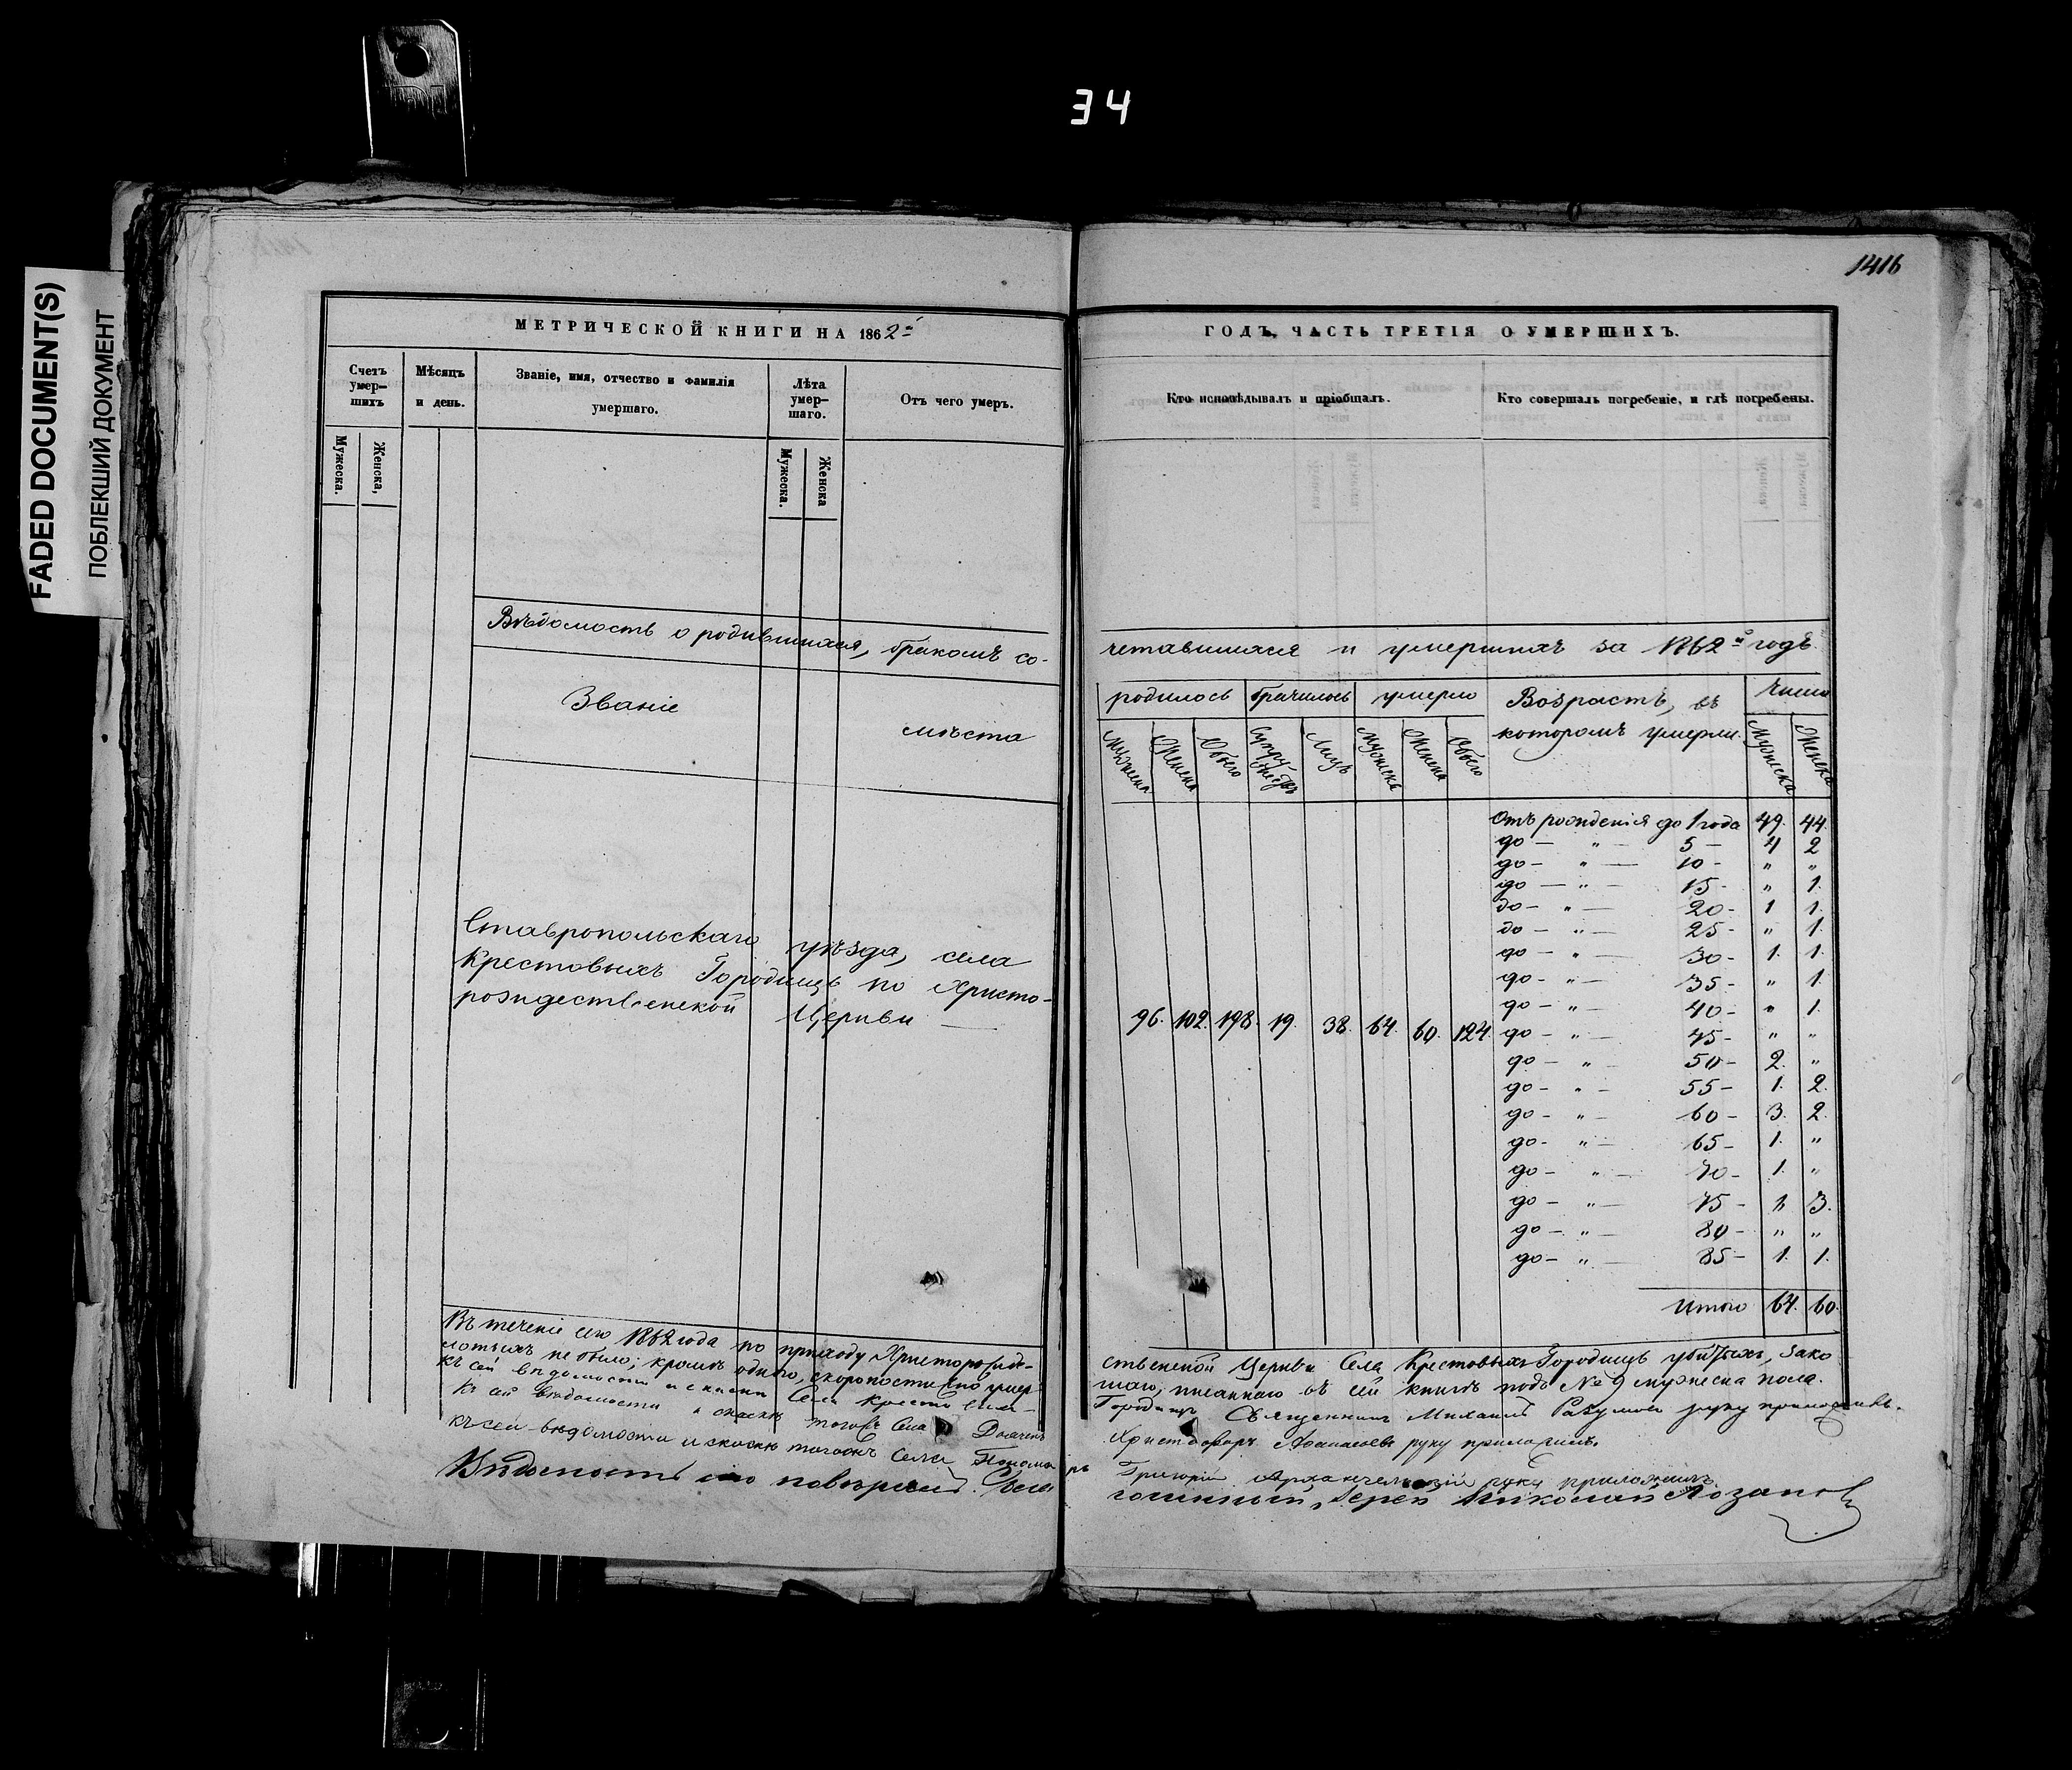 34
FADED DOCUMENT(S)
ПОБЛЕКШИЙ ДОКУМЕНТ
1416
МЕТРИЧЕСКОЙ КНИГИ НА 1862й
Счетъ умер- шихъ
Мѣсяцъ и день.
Званіе, имя, отчество и фамилія умершаго.
Лѣта умер- шаго.
Отъ чего умеръ.
Мужеска.
Женска,
Мужеска.
Женска
ГОДЪ, ЧАСТЬ ТРЕТІЯ О УМЕРШИХЪ.
Кто исповѣдывалъ и пріобщалъ.
Кто совершалъ погребеніе, и гдѣ погребены.
Вѣдомость о родившихся, бракомъ со-
четавшихся и умершихъ за 1862й годъ
Званіе
мѣста
родилось
брачилось
умерло
Возрастъ, въ
которомъ умерли.
Число
Мужеска
Женска
Обоего
Супру-
жествъ
Лицъ
Мужеска
Женска
Обоего
Мужеска
Женска
Ставропольскаго уѣзда, села
Крестовыхъ Городищъ по Христо-
рождественской Церкви —
96. 102. 198. 19. 38. 64. 60. 124.
Отъ рожденія до 1 года 49. 44.
до — " — 5 — 4 2
до — " — 10 - " "
до — " — 15 - " 1.
до — " — 20 - 1 1.
до — " — 25 - " 1.
до — " — 30 - 1. 1.
до — " — 35 - " 1.
до — " — 40 - " 1.
до — " — 45 - " "
до — " — 50 - 2. "
до — " — 55 - 1. 2.
до — " — 60 - 3. 2.
до — " — 65 - 1. "
до — " — 70 - 1. "
до — " — 75 - " 3.
до — " — 80 - " "
до — " — 85 - 1. 1.
Итого 64. 60.
Въ теченіе сего 1862 года по приходу Христорожде-
ственской Церкви Села Крестовыхъ Городищъ убитыхъ, зако
лотыхъ не было; кромѣ одного, скоропостижно умер-
шаго, писаннаго въ сей книгѣ подъ № 9 мужеска пола.
Къ сей вѣдомости и списку Села Крестовыхъ
Городищъ Священникъ Михаилъ Разумовъ руку приложилъ.
Къ сей вѣдомости и списку тогожъ Села Дьяченъ
Христофоръ Афанасьевъ руку приложилъ.
Къ сей вѣдомости и списку тогожъ Села Пономарь
Григорій Архангельскій руку приложилъ
Вѣдомость сію повѣрялъ. Благо
чинный, Іерей Николай Лозановъ